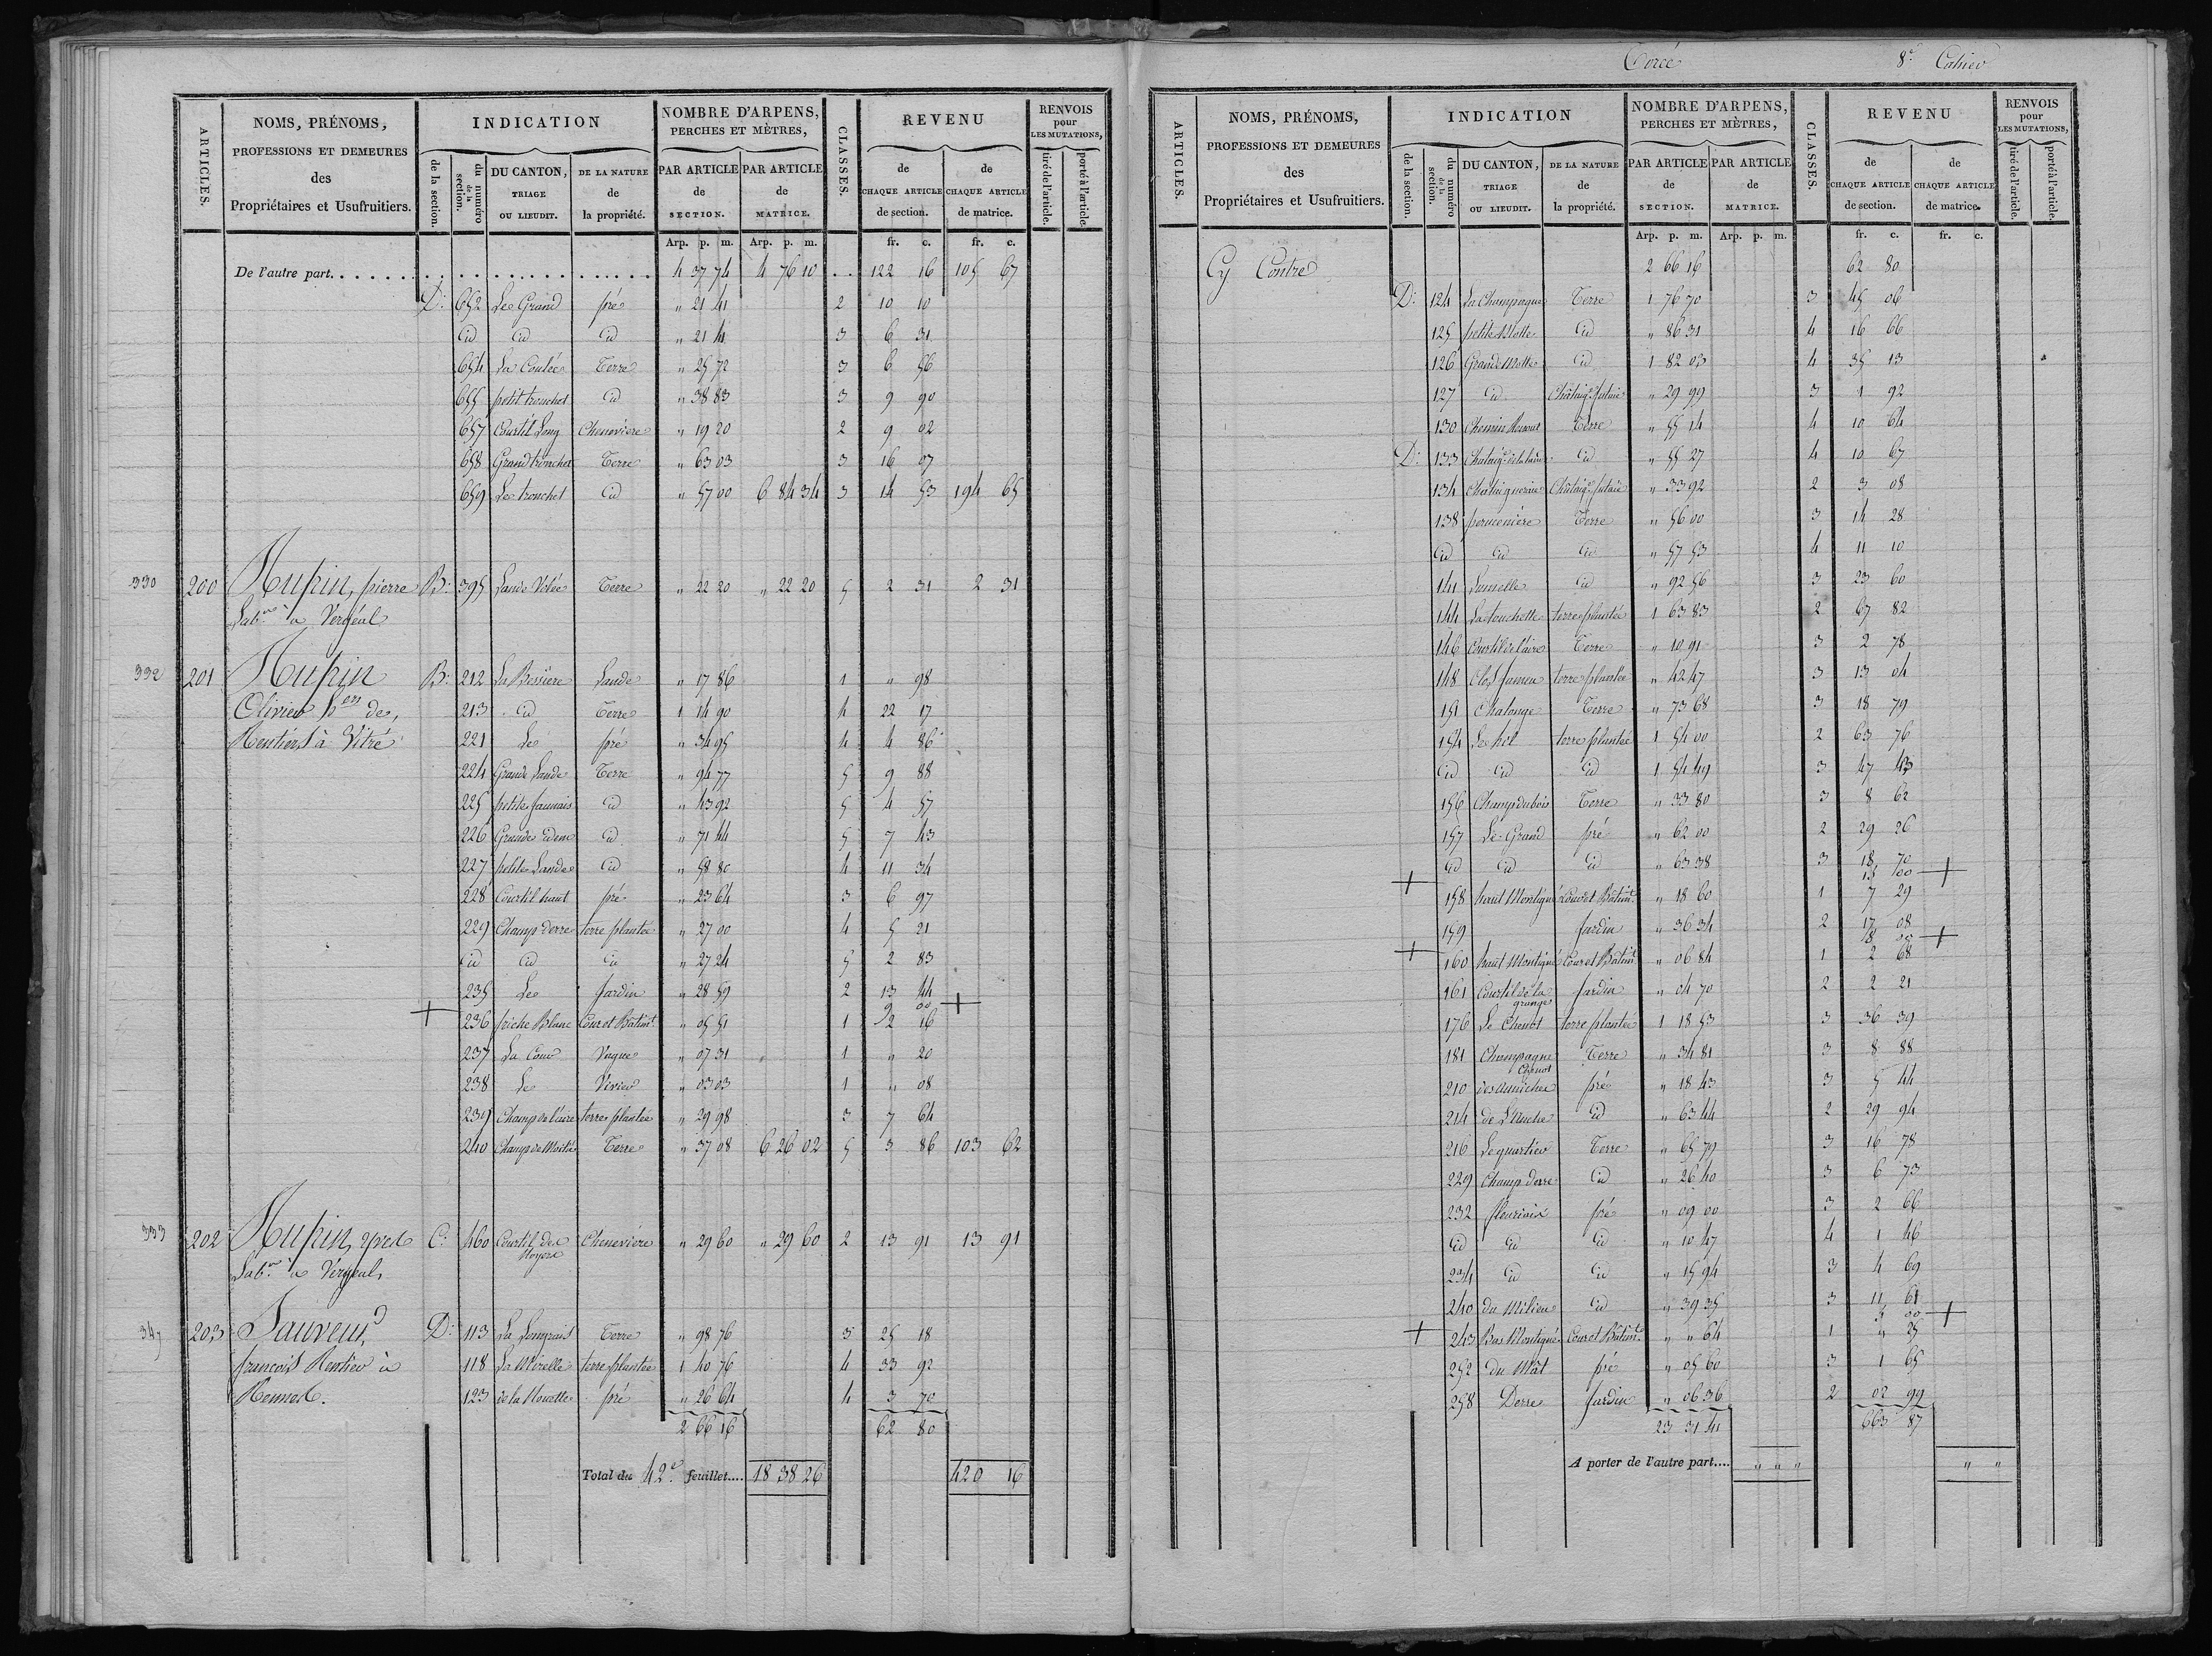 Torcé 8e Cahier
ARTICLES.
NOMS, PRÉNOMS,
PROFESSIONS ET DEMEURES
des
Propriétaires et Usufruitiers.
INDICATION
de la section.
du numéro de la section.
DU CANTON,
TRIAGE
OU LIEUDIT.
DE LA NATURE
de
la propriété.
NOMBRE D'ARPENS,
PERCHES ET MÈTRES,
PAR ARTICLE
de
SECTION.
PAR ARTICLE
de
MATRICE.
CLASSES.
REVENU
de
CHAQUE ARTICLE
de section.
de
CHAQUE ARTICLE
de matrice.
RENVOIS
pour
LES MUTATIONS,
tiré de l'article.
porté à l'article.
Arp. p. m. Arp. p. m. fr. c. fr. c.
De l'autre part. 4 37 74 4 76 10 122 16 105 67
D: 652 Le Grand pré " 21 41 2 10 10
id id id " 21 41 3 6 31
654 La Coulée Terre " 25 72 3 6 56
655 petit tronchet id " 38 83 3 9 90
657 Courtil Long Cheneviere " 19 20 2 9 02
658 Grand tronchet Terre " 63 03 3 16 07
659 Le tronchet id " 57 00 6 84 34 3 14 53 194 65
330 200 Hupin, pierre B: 395 Lande Vilée Terre " 22 20 " 22 20 5 2 31 2 31
Labr à Vergéal
332 201 Hupin B: 212 La Bessiere Lande " 17 86 1 " 98
Olivier hen de, 213 id Terre 1 14 90 4 22 17
Rentiers à Vitré 221 Le pré " 34 95 4 4 86
224 Grande Lande Terre " 94 77 5 9 88
225 petite Jaunais id " 43 92 5 4 57
226 Grande idem id " 71 44 5 7 43
227 petite Lande id " 58 80 4 11 34
228 Courtil haut pré " 23 64 3 6 97
229 Champ derre terre plantée " 27 00 4 5 21
id id id " 27 24 5 2 83
235 Le Jardin " 28 59 2 13 44
+ 9 00 +
236 friche Blanc Cour et Bâtimt " 05 51 1 2 16
237 La Cour Vague " 07 31 " 1 " 20
238 Le Vivier " 03 03 1 " 08
239 Champ de l'aire terre plantée " 29 98 3 7 64
240 Champ de Moitié Terre " 37 08 6 26 02 5 3 86 103 62
333 202 Hupin, C: 460 Courtil de Cheneviere " 29 60 " 29 60 2 13 91 13 91
Labr à Vergéal,
347 203 Sauveur, D: 113 La Longrais Terre " 98 76 3 25 18
francois Rentier à 118 La Mirelle terre plantée 1 40 76 4 33 92
Rennes. 123 de la Nouette pré " 26 64 4 3 70
2 66 16 62 80
Total du 42e feuillet.... 18 38 26 420 16
ARTICLES.
NOMS, PRÉNOMS,
PROFESSIONS ET DEMEURES
des
Propriétaires et Usufruitiers.
INDICATION
de la section.
du numéro de la section.
DU CANTON,
TRIAGE
OU LIEUDIT.
DE LA NATURE
de
la propriété.
NOMBRE D'ARPENS,
PERCHES ET MÈTRES,
PAR ARTICLE
de
SECTION.
PAR ARTICLE
de
MATRICE.
CLASSES.
REVENU
de
CHAQUE ARTICLE
de section.
de
CHAQUE ARTICLE
de matrice.
RENVOIS
pour
LES MUTATIONS,
tiré de l'article.
porté à l'article.
Arp. p. m. Arp. p. m. fr. c. fr. c.
Cy Contre 2 66 16 62 80
D: 124 La Champagne Terre 1 76 70 3 45 06
125 petite Motte id " 86 31 4 16 66
126 Grande Motte id 1 82 03 4 35 13
127 id Châtaigr futaie " 29 99 3 1 92
130 Chemin Terre " 55 14 4 10 64
D: 133 id " 55 27 4 10 67
134 Chataigneraie Châtaigr futaie " 33 92 2 3 08
138 Terre " 56 00 3 14 28
id id id " 57 53 4 11 10
141 Lamelle id " 92 56 3 23 60
144 La touchette terre plantée 1 63 83 2 67 82
146 Courtil de l'aire Terre " 10 91 3 2 78
148 Clos terre plantée " 42 47 3 13 04
151 Chalonge Terre " 73 68 3 18 79
154 terre plantée 1 54 00 2 63 76
id id id 1 54 49 3 47 43
156 Champ du bois Terre " 33 80 3 8 62
157 Le Grand pré " 62 00 2 29 26
id id id " 63 38 3 18 70
+ 15 00 +
158 haut Montigné Cour et Bâtimt " 18 60 1 7 29
159 Jardin " 36 34 2 17 08
+ 18 00 +
160 haut Montigné Cour et Bâtimt " 06 84 1 2 68
161 Courtil de la grange Jardin " 04 70 2 2 21
176 Le Chenot terre plantée 1 18 53 3 36 39
181 Champagne Chenot Terre " 34 81 3 8 88
210 pré " 18 43 3 5 44
214 de L'Anche id " 63 44 2 29 94
216 Le quartier Terre " 65 79 3 16 78
229 Champ derre id " 26 40 3 6 73
232 pré " 09 00 3 2 66
id id id " 10 47 4 1 46
234 id id " 15 94 3 4 69
240 du Milieu id " 39 35 3 11 61
+ 00 +
243 Bas Montigné Cour et Bâtimt " " 64 1 " 25
252 du Mât pré " 05 60 3 1 65
258 Derre Jardin " 06 36 2 02 99
23 31 41 663 87
A porter de l'autre part.... " " " " "